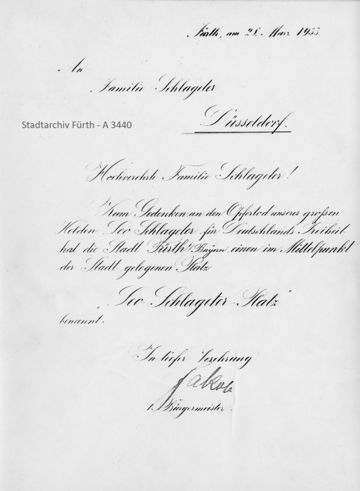 Fürth, am 28. März 1933.
An
Familie Schlageter
Düsseldorf.
Stadtarchiv Fürth - A 3440
Hochverehrte Familie Schlageter!
Zum Gedenken an den Opfertod unseres großen
Helden Leo Schlageter für Deutschlands Freiheit
hat die Stadt Fürth Bayern einen im Mittelpunkt
der Stadt gelegenen Platz
"Leo Schlageter Platz"
benannt.
In tiefer Verehrung
Jakob
1. Bürgermeister.